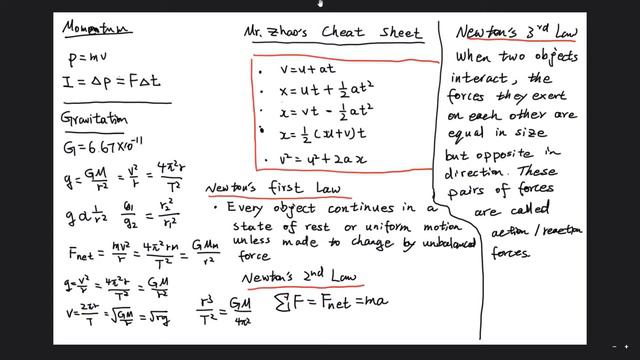 Momentum
p = mv
I = Δp = FΔt
Gravitation
G = 6.67×10⁻¹¹
g = GM/r² = v²/r = 4π²r/T²
g α 1/r² g₁/g₂ = r₂²/r₁²
Fnet = mv²/r = 4π²rm/T² = GMm/r²
g = v²/r = 4π²r/T² = GM/r²
v = 2πr/T = √GM/r = √rg
r³/T² = GM/4π²
Mr. Zhao's Cheat Sheet
• v = u + at
• x = ut + ½at²
• x = vt - ½at²
• x = ½(u+v)t
• v² = u² + 2ax
Newton's first Law
• Every object continues in a
state of rest or uniform motion
unless made to change by unbalanced
force
Newton's 2nd Law
∑F = Fnet = ma
Newton's 3rd Law
When two objects
interact, the
forces they exert
on each other are
equal in size
but opposite in
direction. These
pairs of forces
are called
action/reaction
forces.